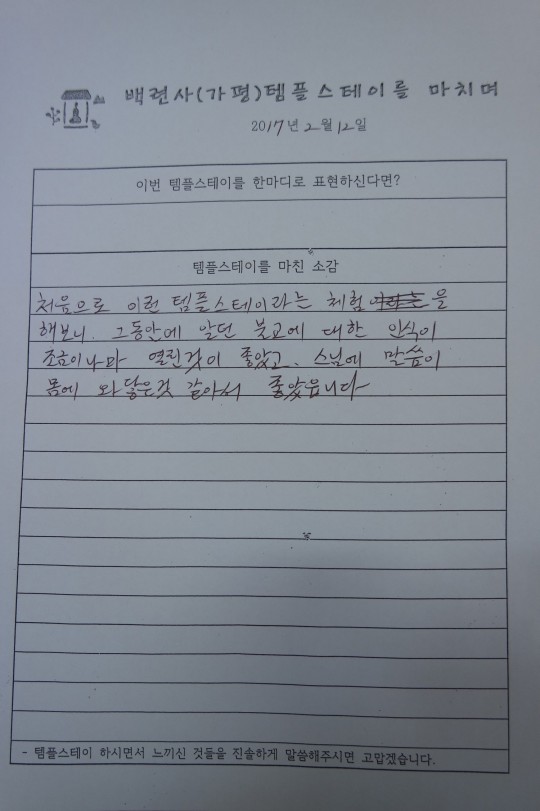 백련사(가평)템플스테이를 마치며
2017년 2월 12일
이번 템플스테이를 한마디로 표현하신다면?
템플스테이를 마친 소감
처음으로 이런 템플스테이라는 체험 을
해보니. 그동안에 알던 불교에 대한 인식이
조금이나마 열린것이 좋았고. 스님에 말씀이
몸에 와닿은것 같아서 좋았읍니다
- 템플스테이 하시면서 느끼신 것들을 진솔하게 말씀해주시면 고맙겠습니다.